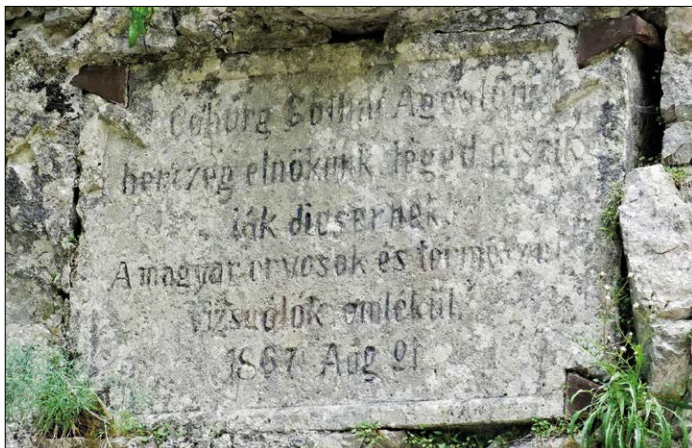 Coburg Gothai Agoston
herczeg elnökünk téged a szik
lák dicsernek
A magyar orvosok és termeszet
vizsgálók emlékül.
1867 Aug 01